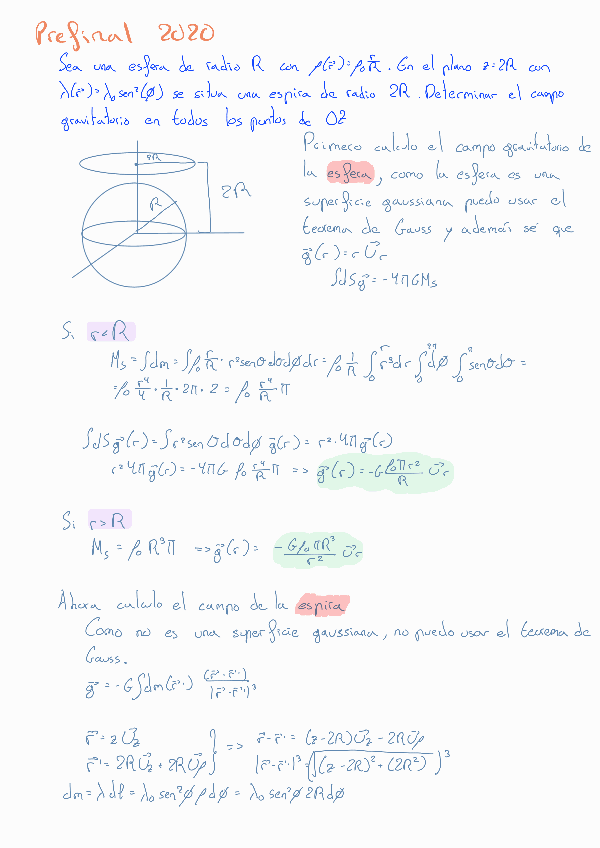 Prefinal 2020
Sea una esfera de radio R con ρ(r⃗)=ρ₀ r/R. En el plano z=2R con
λ(r⃗)=λ₀sen²(ϕ) se situa una espira de radio 2R. Determinar el campo
gravitatorio en todos los puntos de OZ
2R
R
2R
Primero calculo el campo gravitatorio de
la esfera, como la esfera es una
superficie gaussiana puedo usar el
teorema de Gauss y además sé que
g⃗(r)=r U⃗r
∫dS g⃗ = -4πGMs
Si r<R
Ms=∫dm=∫ρ₀ r/R · r²senθdθdϕdr=ρ₀ 1/R ∫₀^r r³dr ∫₀^2π dϕ ∫₀^π senθdθ=
=ρ₀ r⁴/4 · 1/R · 2π · 2 = ρ₀ r⁴/R π
∫dS g⃗(r)=∫r²senθdθdϕ g⃗(r)= r²·4π g⃗(r)
r²4π g⃗(r)=-4πG ρ₀ r⁴/R π => g⃗(r)=-G ρ₀πr²/R U⃗r
Si r>R
Ms = ρ₀R³π => g⃗(r)= -Gρ₀πR³/r² U⃗r
Ahora calculo el campo de la espira
Como no es una superficie gaussiana, no puedo usar el teorema de
Gauss.
g⃗ = -G∫dm(r⃗') (r⃗-r⃗')/|r⃗-r⃗'|³
r⃗=zU⃗z
r⃗'=2RU⃗z+2RU⃗ρ } => r⃗-r⃗' = (z-2R)U⃗z-2RU⃗ρ
|r⃗-r⃗'|³=(√((z-2R)²+(2R²)))³
dm=λdl=λ₀sen²ϕρdϕ=λ₀sen²ϕ2Rdϕ